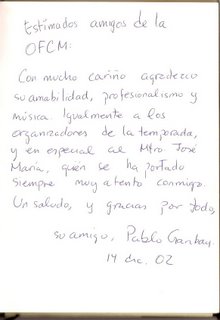 Estimados amigos de la
OFCM:
Con mucho cariño agradezco
su amabilidad, profesionalismo y
música. Igualmente a los
organizadores de la temporada,
y en especial al Mtro. José
María, quien se ha portado
siempre muy atento conmigo.
Un saludo, y gracias por todo,
su amigo, Pablo
14 dic. 02